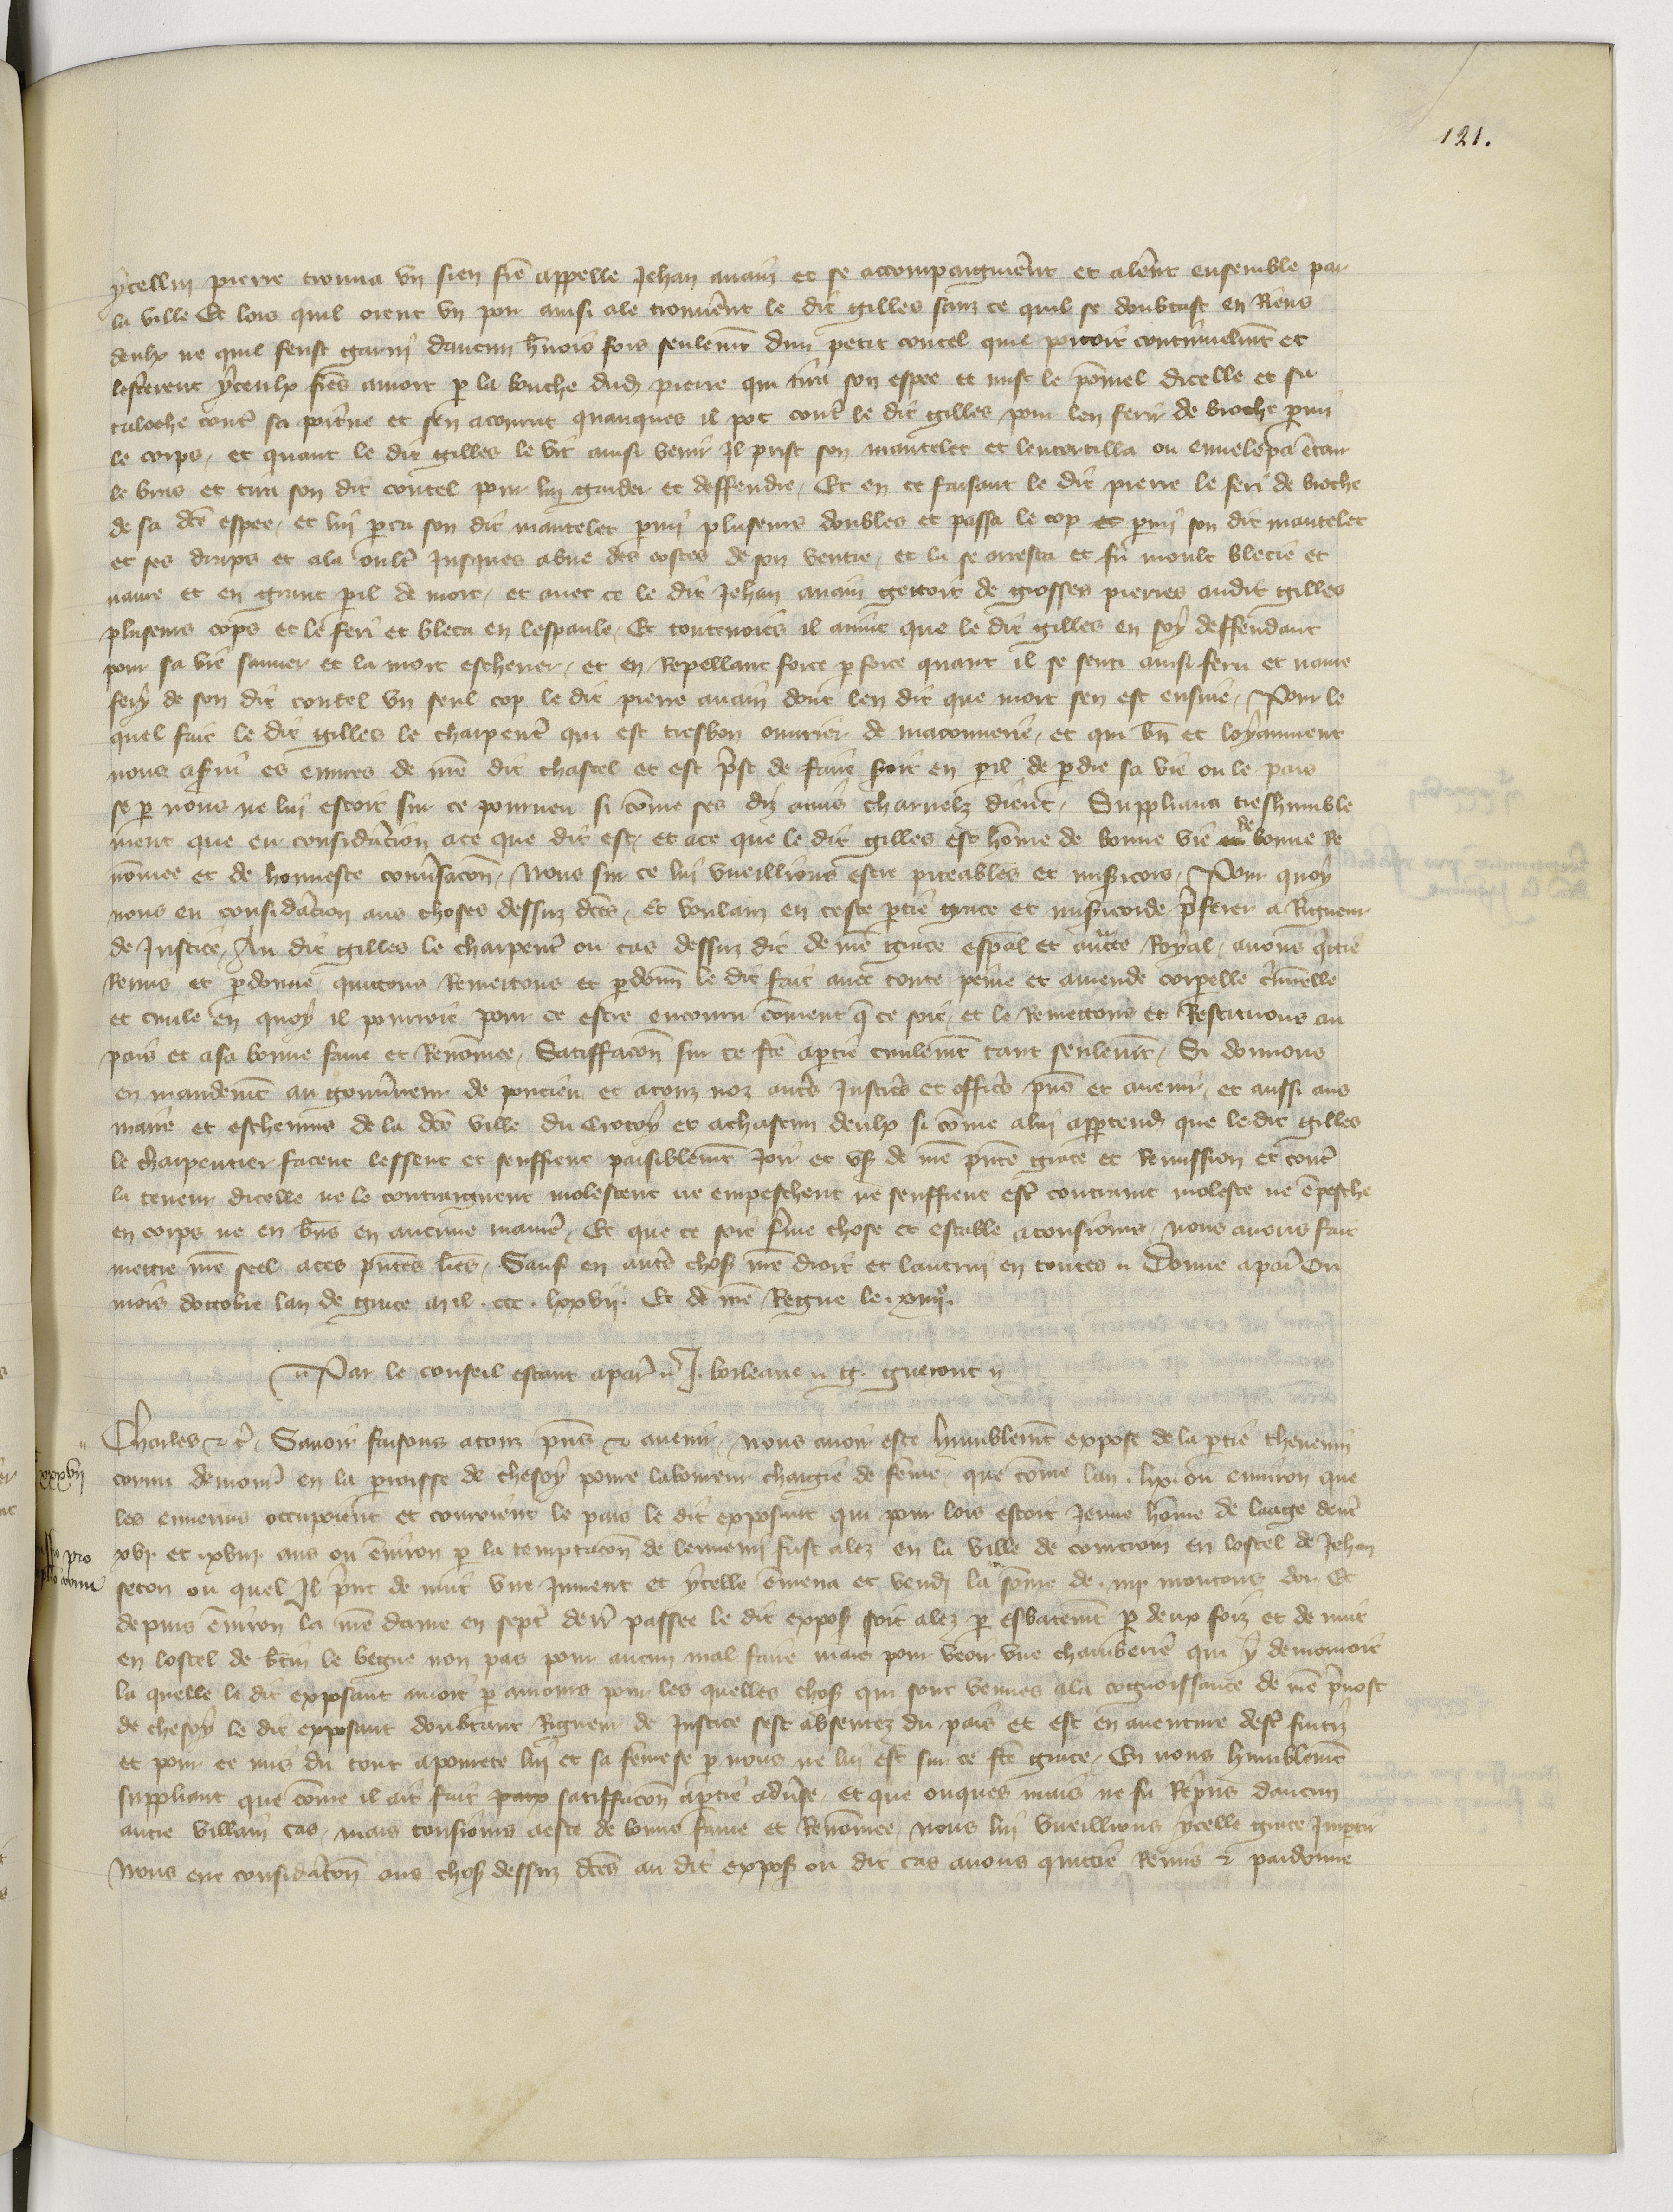 121.
ycellui pierre trouva un sien fre appelle Jehan avain et se accompaignerent et alerent ensemble par
la ville Et lors quil orent un pou ainsi ale trouverent le dit gilles sanz ce quil se doubtast en Riens
deulx ne quil feust garni daucun harnois fors seulemt dun petit coutel quil portoit continuelmt et
lescrierent yceulx fres a mort p la bouche dud pierre qui tira son espee et mist le pomel dicelle et sa
taloche contre sa poitrine et sen acourut quanques il pot contre le dit gilles pour len ferir de broche parmi
le corps, et quant le dit gilles le vit ainsi venir Il prist son mantelet et lentortilla ou envelopa entour
le bras et tira son dit coutel pour luy garder et deffendre, Et en ce faisant le dit pierre le feri de broche
de sa dce espee, et lui perca son dit mantelet parmi pluseurs doubles et passa le cop parmi son dit mantelet
et ses draps et ala oultre jusques a une des costes de son ventre, et la se arresta et fu moult blecie et
navre et en grant peril de mort, et avec ce le dit Jehan avain gettoit de grosses pierres audit gilles
pluseurs cops et le feri et bleca en lespaule, Et toutevoies il avint que le dit gilles en soy deffendant
pour sa vie sauver et la mort eschever, et en Repellant force p force quant il se senti ainsi feru et navre
fery de son dit coutel un seul cop le dit pierre avain dont len dit que mort sen est ensuie, Pour le
quel fait le dit gilles le charpentier qui est tresbon ouvrier de maconnerie, et qui bn et loyaument
nous a servi es euvres de nre dit chastel et est prest de faire soit en peril de perdre sa vie ou le pais
se p nous ne lui estoit sur ce pourveu si come ses diz amis charnelz dient, Suppliant treshumble
ment que en consideracion a ce que dit est, et a ce que le dit gilles est home de bonne vie de bonne Re
nomee et de honneste conversacon, Nous sur ce lui vueillions estre piteables et misericors, Pour quoy
nous en consideracion aus choses dessuz dces, Et voulanz en ceste partie grace et misericorde preferer a Rigueur
de Justice, Au dit gilles le charpentier ou cas dessuz dit de nre grace espal et auctte Royal, avons qtte
Remis et pdonne quittons Remettons et pdonn le dit fait avec toute peine et amende corporelle criminelle
et civile en quoy il pourroit pour ce estre encouru coment q ce soit, et le Remettons et Restituons au
pais et a sa bonne fame et Renomee, Satiffacon sur ce fte a partie civilemt tant seulemt, Si donnons
en mandemt au gouverneur de pontieu et a touz noz autres Justiciers et officiers pns et avenir, et aussi aus
maire et eschevins de la dce ville du Crotoy et a chascun deulx si come a lui appertend que le dit gilles
le charpentier facent lessent et seuffrent paisiblemt Joir et user de nre pnte grace et Remission et contre
la teneur dicelle ne le contraignent molestent ne empeschent ne seuffrent estre contraint moleste ne empesche
en corps ne en bns en aucune maniere, Et que ce soit ferme chose et estable a tousjours, nous avons fait
mettre nre seel a ces pntes lres, Sauf en autres choses nre droit et lautrui en toutes Donne a paris Ou
mois doctobre lan de grace mil . ccc . lxxvii. Et de nre Regne le . xiiiie.
Par le conseil estant a paris J. boileaue g. gueront
Charles &c, Savoir faisons a touz pns & avenir, Nous avoir este humblemt expose de la partie thevenin
cornu demourant en la parroisse de chesoy povre laboureur chargie de feme, que come lan . lix. ou environ que
les ennemis occupoient et couroient le pais le dit exposant qui pour lors estoit Jeune home de laage dentre
xvi et xviii. ans ou environ p la temptacon de lennemi fust alez en la ville de en lostel de Jehan
seton ou quel Il print de nuit une Jument et ycelle emmena et vendi la some de . iiii moutons dor, Et
depuis environ la nre dame en sept derr passee le dit expos soit alez p esbatemt p deux foiz et de nuit
en lostel de le begue non pas pour aucun mal faire mais pour veoir une chamberiere qui y demouroit
la quelle le dit exposant amoit p amours pour les quelles choses qui sont venues a la cognoissance de nre prevost
de chesoy le dit exposant doubtant Rigueur de Justice sest absentez du pais et est en aventure destre fuitiz
et pour ce mis du tout a povrete lui et sa feme se p nous ne lui est sur ce fte grace, En nous humblemt
suppliant que come il ait fait satiffacon a partie adverse, et que onques mais ne fu Repris daucun
autre villain cas, mais tousjours a este de bonne fame et Renomee, nous lui vueillions ycelle grace Impartir
Nous eue consideracon aus choses dessuz dces au dit expos ou dit cas avons quittie Remis & pardonne